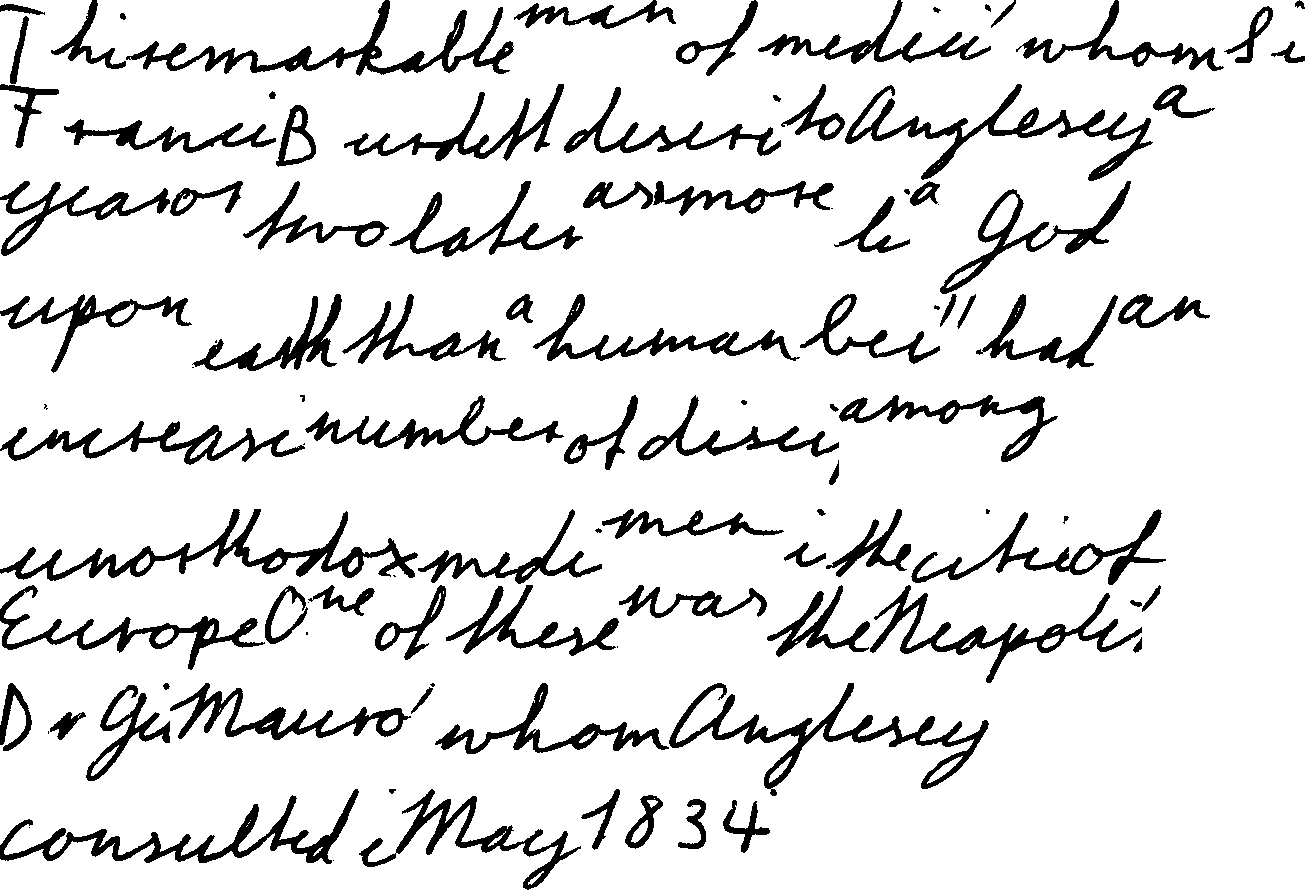 Thiremarkable man of medici' whom Si
Franci Burdett descri to Anglesey a
year or two later as more li a God
upon earth than a human bei" had an
increasi number of disci, among
unorthodox medi men i the citie of
Europe One of these was the Neapoli'.
Dr Gi. Mauro' whom Anglesey
consulted i May 1834